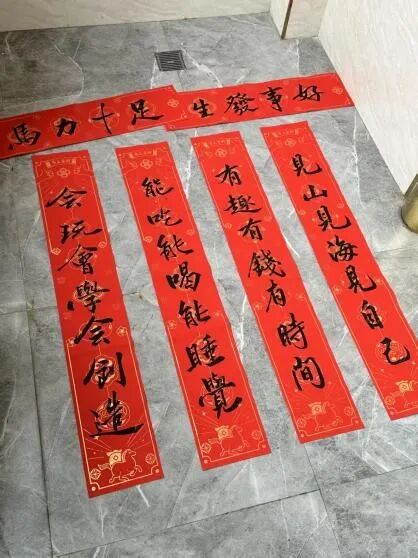 馬力十足
好事發生
見山見海見自己
有趣有錢有時間
能吃能喝能睡覺
会玩會學会創造